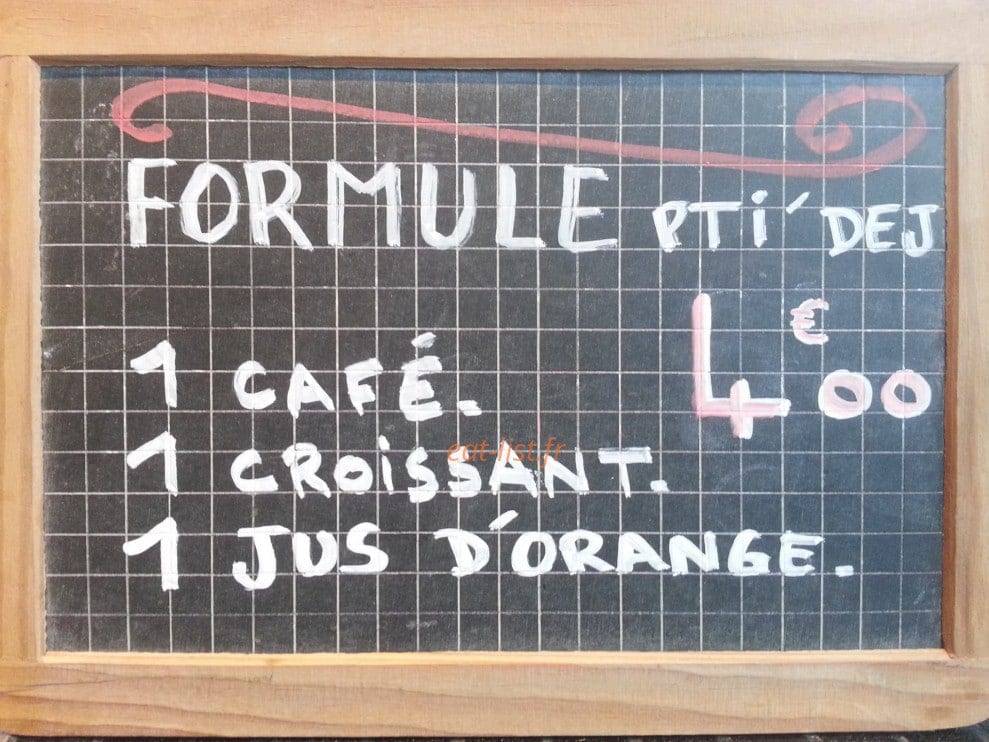 FORMULE PTi' DEJ
4€00
1 CAFÉ.
1 CROiSSANT.
1 JUS D'ORANGE.
eat-list.fr